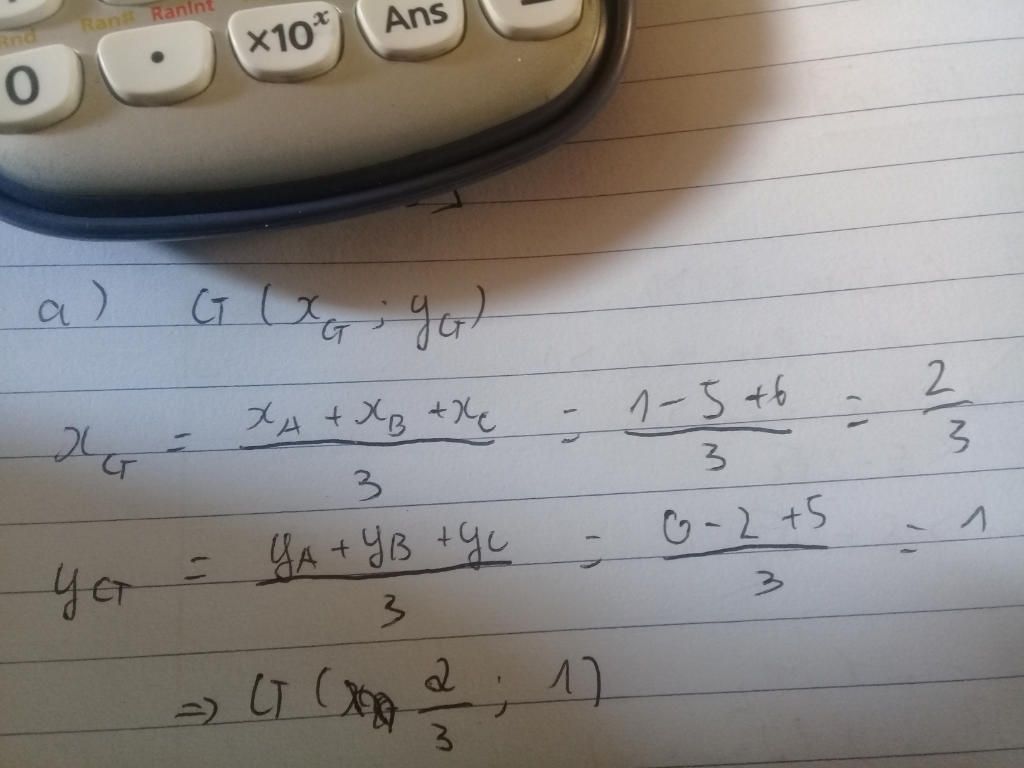 Rnd Ran# RanInt
0 . ×10ˣ Ans
a) G (x_G ; y_G)
x_G = (x_A + x_B + x_C)/3 = (1 - 5 + 6)/3 = 2/3
y_G = (y_A + y_B + y_C)/3 = (0 - 2 + 5)/3 = 1
=> G ( 2/3 ; 1)